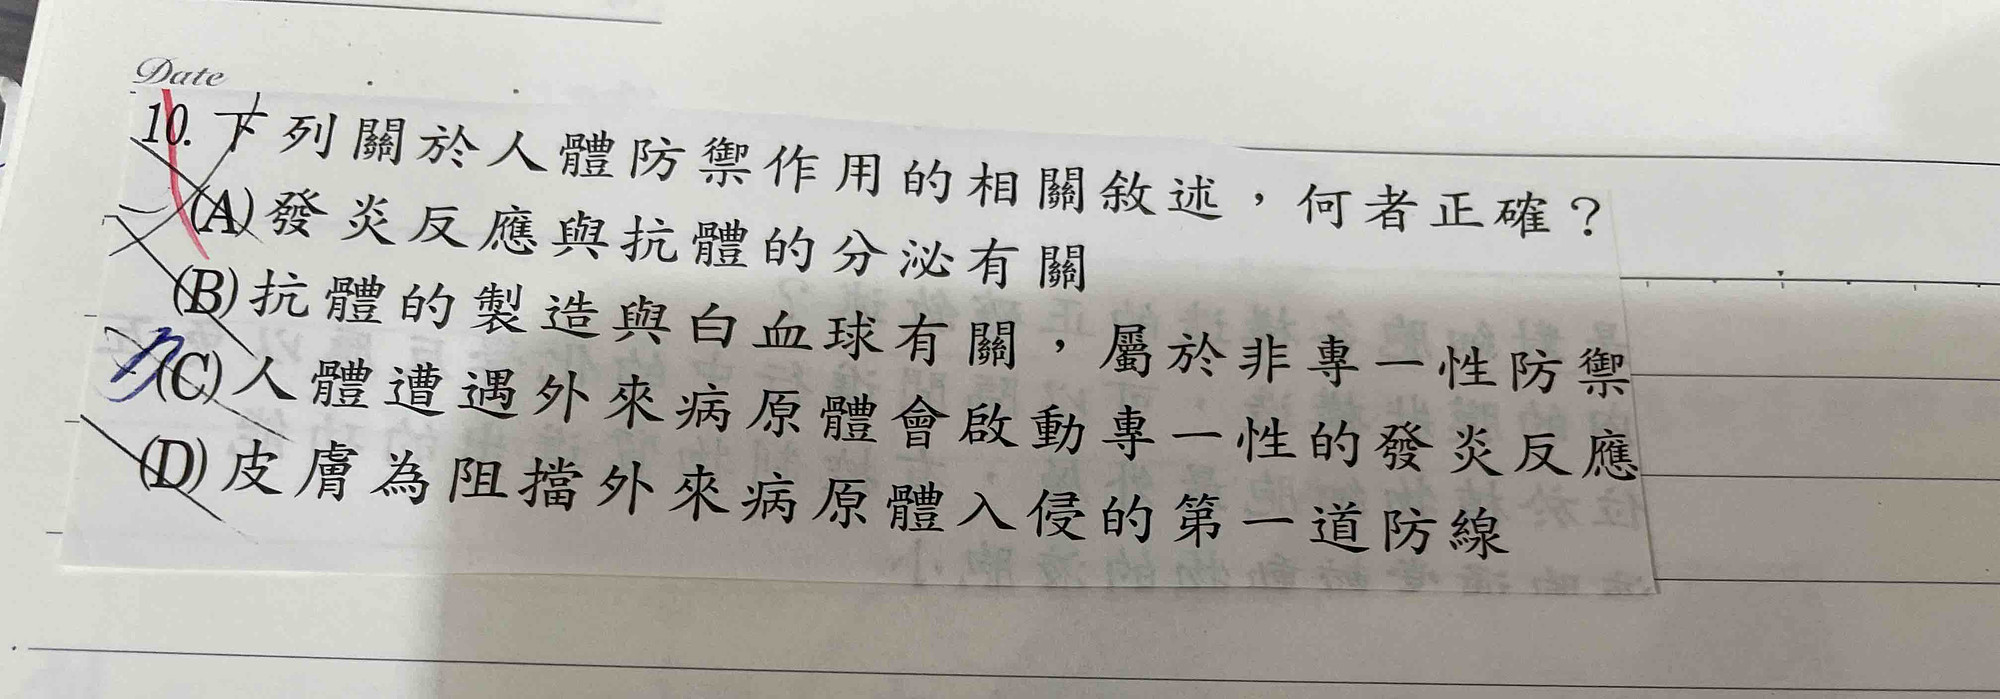 Date
10. 下列關於人體防禦作用的相關敘述，何者正確？
(A)發炎反應與抗體的分泌有關
(B)抗體的製造與白血球有關，屬於非專一性防禦
(C)人體遭遇外來病原體會啟動專一性的發炎反應
(D)皮膚為阻擋外來病原體入侵的第一道防線